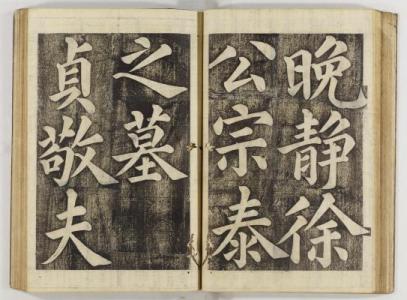 晩静徐
公宗泰
之墓
貞敬夫